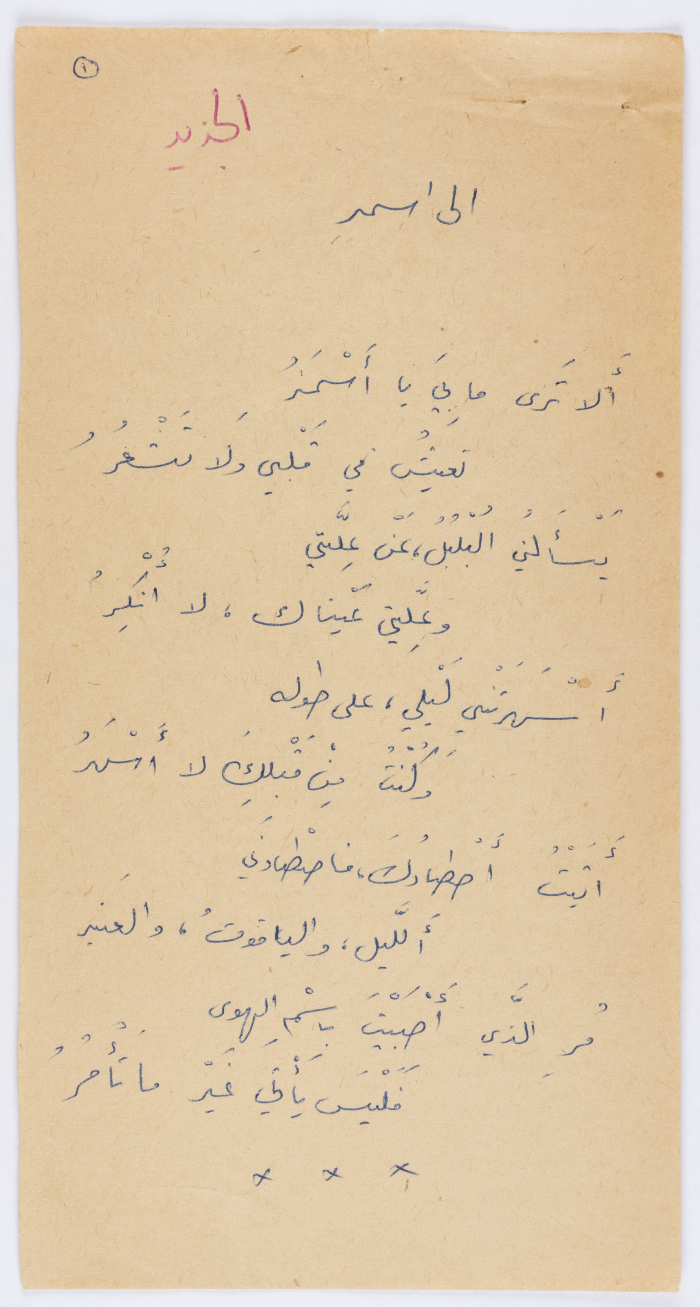 ١
الجديد
الى اسمرِ
أَلا تَرَى ما بِيَ يا أَسْمَرُ
تعيشُ في قَلْبي وَلَا تَشْعُرُ
يَسْألُني البُلْبُلُ، عَنْ عِلَّتي
وعِلَّتي عَيناك، لا أُنْكِرُ
أَسْهَرْتَني لَيْلي، على طوله
وَكُنْتُ مِنْ قَبْلِكَ لا أَسْهَرُ
أَتَيْتُ أَصْطادُكَ، فاصْطادَني
أَللَّيل، والياقوتُ، والعَنبر
مُرِ الذَّي أَحْبَبْتَ باسْمِ الهوى
فَلَيْسَ يَأْتي غَيْرَ ما تَأْمُرُ
× × ×